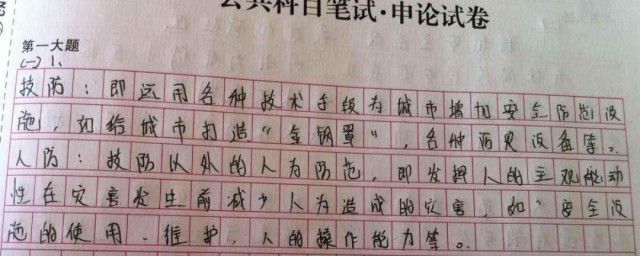 公共科目笔试·申论试卷
第一大题
(一)1、
技防：即运用各种技术手段为城市增加安全防范设
施，如给城市打造“金钢罩”，各种预见设备等。
人防：技防以外的人为防范，即发挥人的主观能动
性在灾害发生前减少人为造成的灾害，如“安全设
施的使用、维护，人的操作能力等。